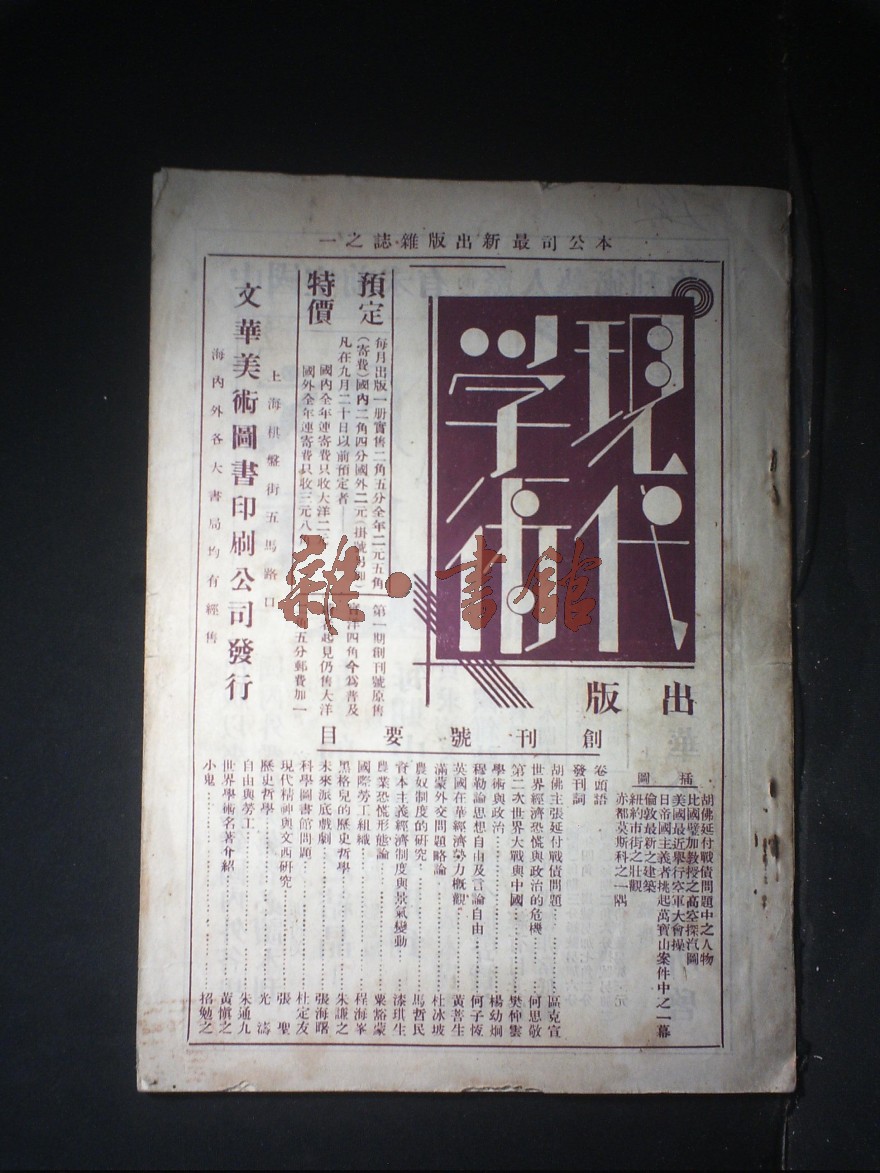 本公司最新出版雜誌之一
現代
学術
出版
預定
特價
每月出版一册實售二角五分全年二元五角
(寄費)國內二角四分國外二元(掛號
凡在九月二十日以前預定者——
國內全年連寄費只收大洋二
國外全年連寄費只收三元八
第一期創刊號原售
實洋四角今爲普及
起見仍售大洋
角五分郵費加一
上海棋盤街五馬路口
文華美術圖書印刷公司發行
海內外各大書局均有經售
雜·書館
創刊號要目
插圖
胡佛延付戰債問題中之人物
比國璧加教授之高空探汽圖
美國最近舉行空軍大會操
日帝國主義者挑起萬寶山案件中之一幕
倫敦最新之建築
紐約市街之壯觀
赤都莫斯科之一隅
卷頭語
發刊詞
胡佛主張延付戰債問題 區克宣
世界經濟恐慌與政治的危機 何思敬
第二次世界大戰與中國 樊仲雲
學術與政治 楊幼炯
穆勒論思想自由及言論自由 何子恆
英國在華經濟勢力概觀 黃菩生
滿蒙外交問題略論 杜冰坡
農奴制度的研究 馬哲民
資本主義經濟制度與景氣變動 漆琪生
農業恐慌形態論 粟豁蒙
國際勞工組織 程海峯
黑格兒的歷史哲學 朱謙之
未來派底戲劇 張海曙
科學圖書館問題 杜定友
現代精神與文西研究 張聖
歷史哲學 光濤
自由與勞工 朱通九
世界學術名著介紹 黃愼之
小鬼 招勉之